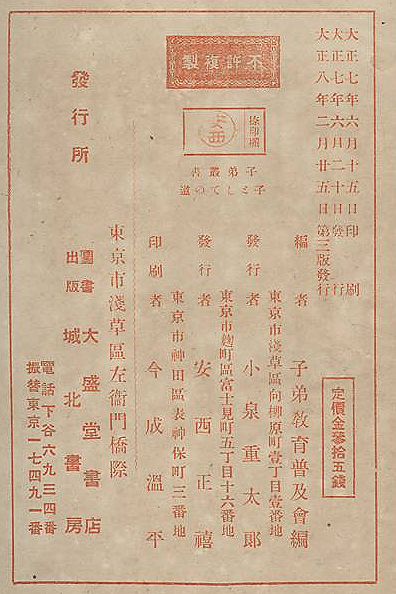 大正七年六月十五日印刷
大正七年六月二十日發行
大正八年二月廿五日第三版發行
定價金參拾五錢
不許複製
子弟叢書
子としての道
編者 子弟教育普及會編
東京市淺草區向柳原町壹丁目壹番地
發行者 小泉重太郎
東京市麴町區富士見町五丁目十六番地
發行者 安西正禧
東京市神田區表神保町三番地
印刷者 今成溫平
東京市淺草區左衞門橋際
發行所
圖書出版 大盛堂書店
城北書房
電話下谷六九三四番
振替東京一七四九一番